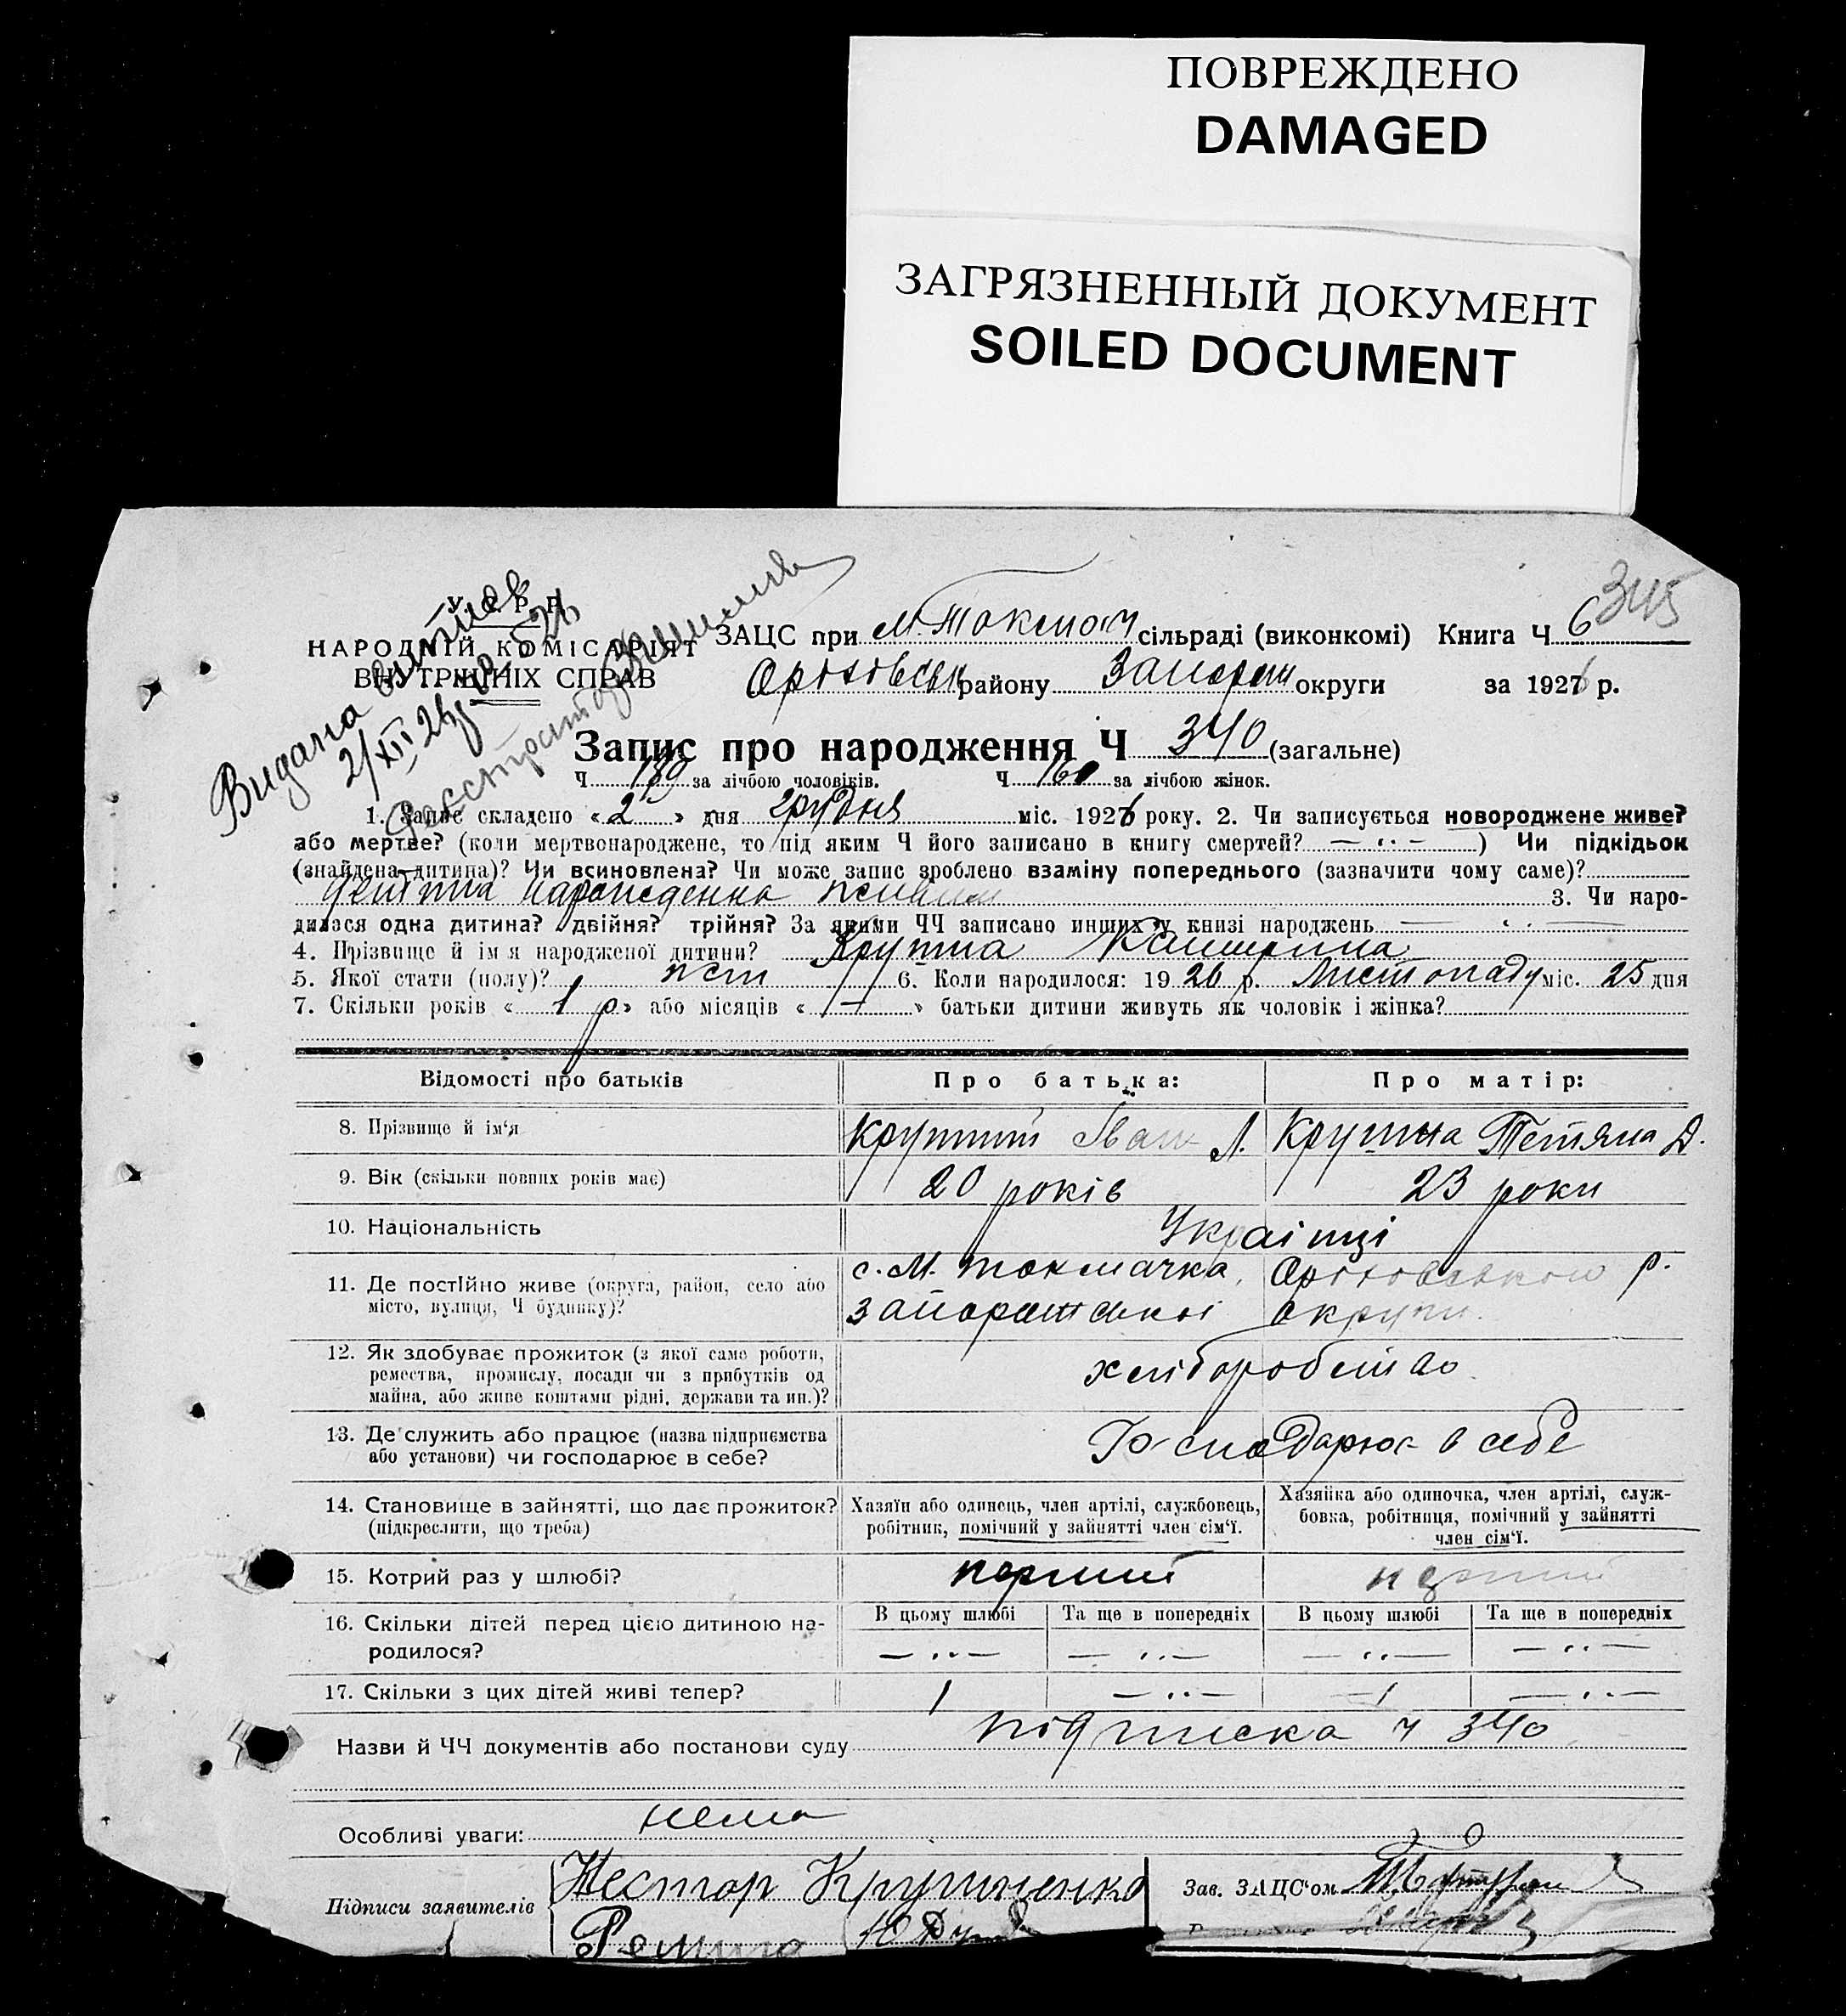 ПОВРЕЖДЕНО
DAMAGED
ЗАГРЯЗНЕННЫЙ ДОКУМЕНТ
SOILED DOCUMENT
345
Видана витяг
2/XII 26
У. С. Р. Р.
НАРОДНІЙ КОМІСАРІЯТ
ВНУТРІШНІХ СПРАВ
ЗАЦС при М. Токмач сільраді (виконкомі) Книга Ч 6
Оріховськ району Запоріж округи за 1926 р.
Запис про народження Ч 340 (загальне)
Ч 180 за лічбою чоловіків. Ч 160 за лічбою жінок.
1. Запис складено « 2 » дня грудня міс. 1926 року. 2. Чи записується новороджене живе?
або мертве? (коли мертвонароджене, то під яким Ч його записано в книгу смертей? — ·· — ) Чи підкідьок
(знайдена дитина)? Чи всиновлена? Чи може запис зроблено взаміну попереднього (зазначити чому саме)?
народженна 3. Чи наро-
дилася одна дитина? двійня? трійня? За якими ЧЧ записано инших у книзі народжень — ·· —
4. Прізвище й ім я народженої дитини? Крутна Катерина
5. Якої стати (полу)? жін 6. Коли народилося: 19 26 р. Листопаду міс. 25 дня
7. Скільки років « 1 р » або місяців « — » батьки дитини живуть як чоловік і жінка?
Відомості про батьків Про батька: Про матір:
8. Прізвище й ім'я Крутний Іван Л. Крутна Тетяна Д.
9. Вік (скільки повних років має) 20 років 23 роки
10. Національність Украінці
11. Де постійно живе (округа, район, село або с. М. Токмачка, Оріховського р.
місто, вулиця, Ч будинку)? Запоріжської округи.
12. Як здобуває прожиток (з якої саме роботи, хліборобство
ремества, промислу, посади чи з прибутків од
майна, або живе коштами рідні, держави та ин.)?
13. Де служить або працює (назва підприємства Господарює в себе
або установи) чи господарює в себе?
14. Становище в зайнятті, що дає прожиток? Хазяїн або одинець, член артілі, службовець, Хазяйка або одиночка, член артілі, служ-
(підкреслити, що треба) робітник, помічний у зайнятті член сім'ї. бовка, робітниця, помічний у зайнятті
член сім'ї.
15. Котрий раз у шлюбі? перший перший
16. Скільки дітей перед цією дитиною на- В цьому шлюбі Та ще в попередніх В цьому шлюбі Та ще в попередніх
родилося? — ·· — — ·· — — ·· — — ·· —
17. Скільки з цих дітей живі тепер? 1 — ·· — 1 — ·· —
Назви й ЧЧ документів або постанови суду підписка ч 340
Особливі уваги: нема
Підписи заявителів Нестор Крутченко Зав. ЗАЦС'ом